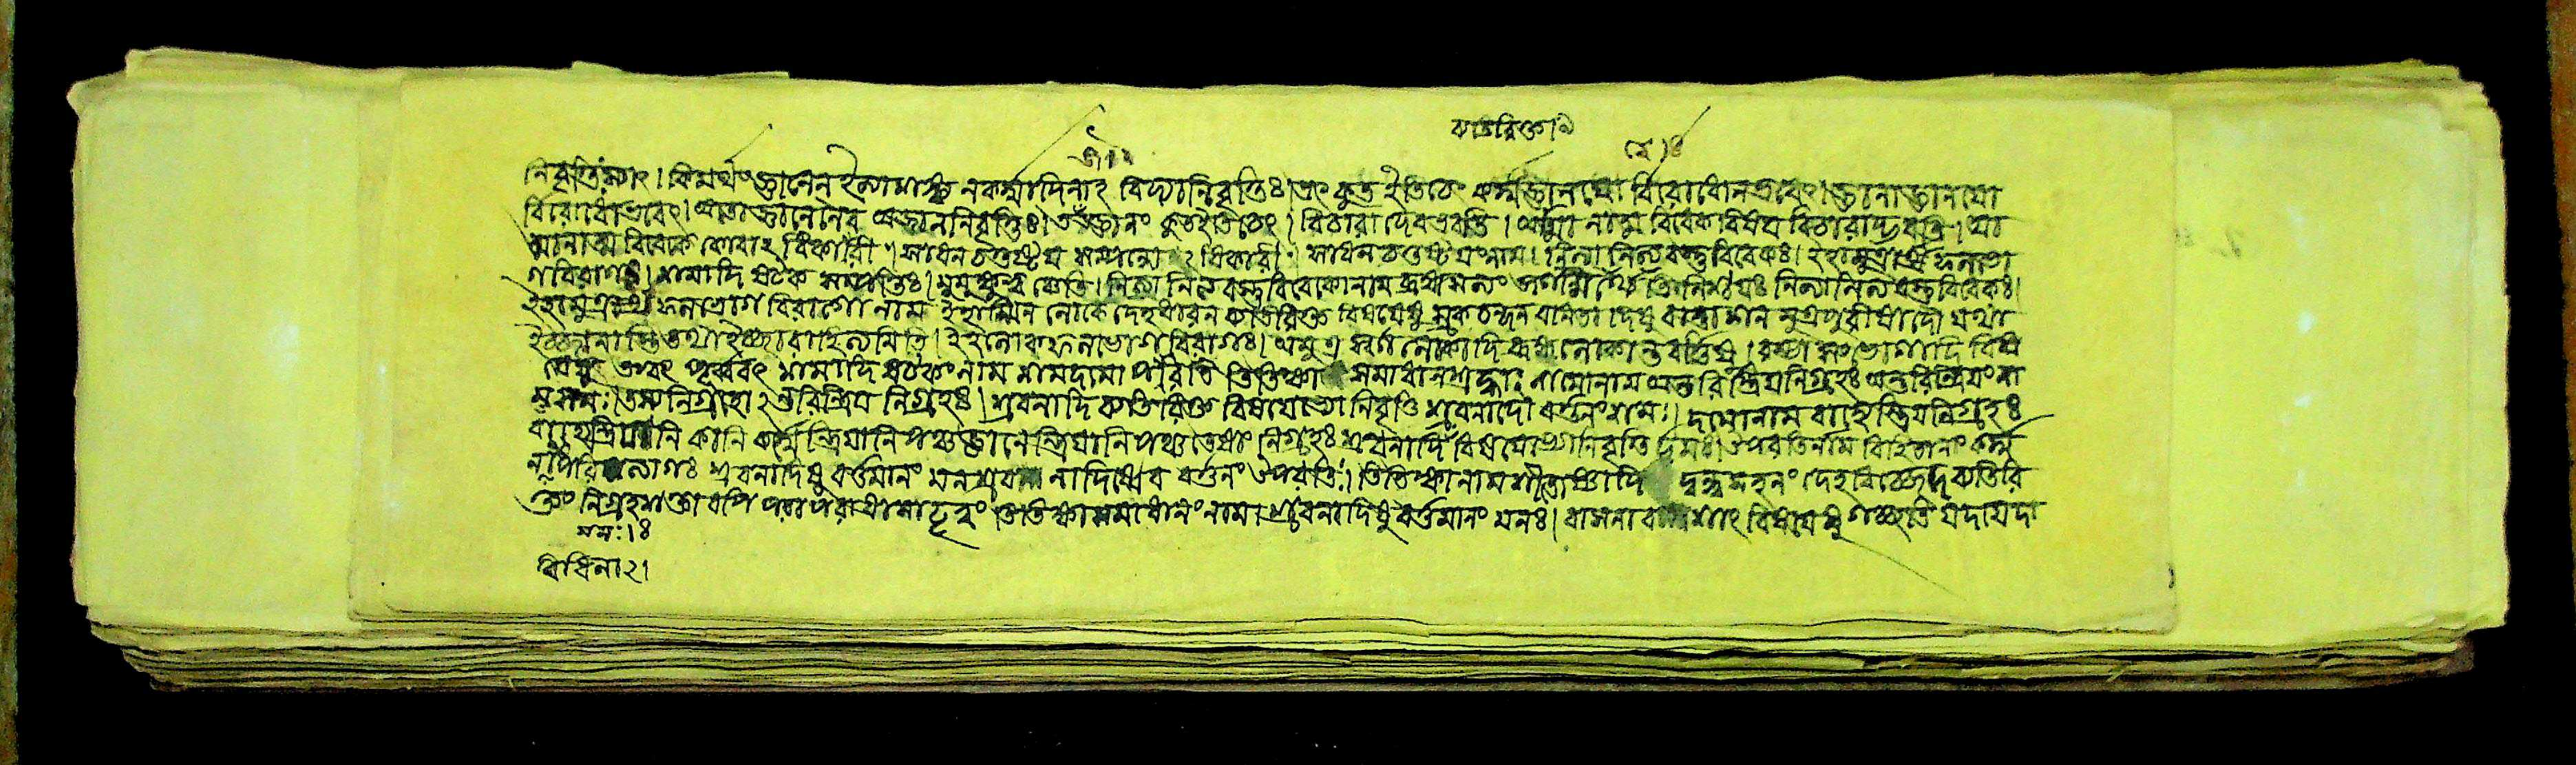 ব্যতিরিক্তা ৯
নিবৃত্তিঃ স্যাৎ। কিমর্থং জ্ঞানেন ইত্যাশঙ্ক্য ন কর্ম্মাদিনাঽবিদ্যানিবৃত্তিঃ। তৎ কুত্র ইতি চেৎ কর্ম্মজ্ঞানয়ো র্বিরোধোনভবেৎ। জ্ঞানাজ্ঞানয়ো
র্বিরোধোভবেৎ। অতোজ্ঞানেনৈব অজ্ঞাননিবৃত্তিঃ। তৎজ্ঞানং কুত ইতি চেৎ। বিচারাদেবভবতি। আত্মানাত্ম বিবেকবিষয় বিচারাদ্ভবতি। আ
ত্মানাত্ম বিবেকে কোবাঽধিকারী। সাধন চতুষ্টয় সম্পন্নোঽধিকারী। সাধন চতুষ্টয়ং নাম। নিত্যানিত্যবস্তুবিবেকঃ। ইহামুত্রার্থ ফলভো
গবিরাগঃ। শমাদি ষটক সম্পত্তিঃ। মুমুক্ষুত্বং চেতি। নিত্যানিত্যবস্তুবিবেকোনাম ব্রহ্মসত্যং জগন্মিথ্যেতি নিশ্চয়ঃ নিত্যানিত্যবস্তুবিবেকঃ।
ইহামুত্রার্থ ফলভোগ বিরাগো নাম ইহাস্মিন লোকে দেহধারন ব্যতিরিক্ত বিষয়েষু স্রক চন্দন বনিতাদিষু বান্তাশন মুত্রপুরীষাদৌ যথা
ইচ্ছানাস্তি তথা ইচ্ছারাহিত্যমিতি। ইহলোকফলভোগবিরাগঃ। অমুত্র স্বর্গলোকাদি ব্রহ্মলোকান্তবর্ত্তিষু। রম্ভা সম্ভোগাদি বিষ
য়েষু তদ্বৎ পূর্ব্ববৎ শমাদি ষটকং নাম শমদমোপরতি তিতিক্ষা সমাধানশ্রদ্ধাঃ শমোনাম অন্তরিন্দ্রিয়নিগ্রহঃ অন্তরিন্দ্রিয়ং না
ম মনঃ। তস্য নিগ্রহোঽন্তরিন্দ্রিয় নিগ্রহঃ। শ্রবনাদি ব্যতিরিক্ত বিষয়েভ্যো নিবৃত্তি শ্রবনাদৌ বর্ত্তনং শমঃ। দমোনাম বাহ্যেন্দ্রিয়নিগ্রহঃ
বাহ্যেন্দ্রিয়ানি কানি কর্ম্মেন্দ্রিয়ানি পঞ্চ জ্ঞানেন্দ্রিয়ানি পঞ্চ তেষাং নিগ্রহঃ শ্রবনাদি বিষয়েভ্যো নিবৃত্তি র্দমঃ। উপরতির্নাম বিহিতানাং কর্ম্ম
নাং পরিত্যাগঃ শ্রবনাদিষু বর্ত্তমানং মনঃশ্রবনাদিষ্বেব বর্ত্তনং উপরতিঃ। তিতিক্ষানাম শীতোষ্ণাদি দ্বন্দ্বসহনং দেহবিচ্ছেদব্যতিরি
ক্তং নিগ্রহশক্তাবপি তিতিক্ষা সমাধানং নাম। শ্রবনাদিষু বর্ত্তমানং মনঃ। বাসনাবশাৎ বিষয়েষু গচ্ছতি যদা যদা
মনঃ। ৪
বিধিনা ২।